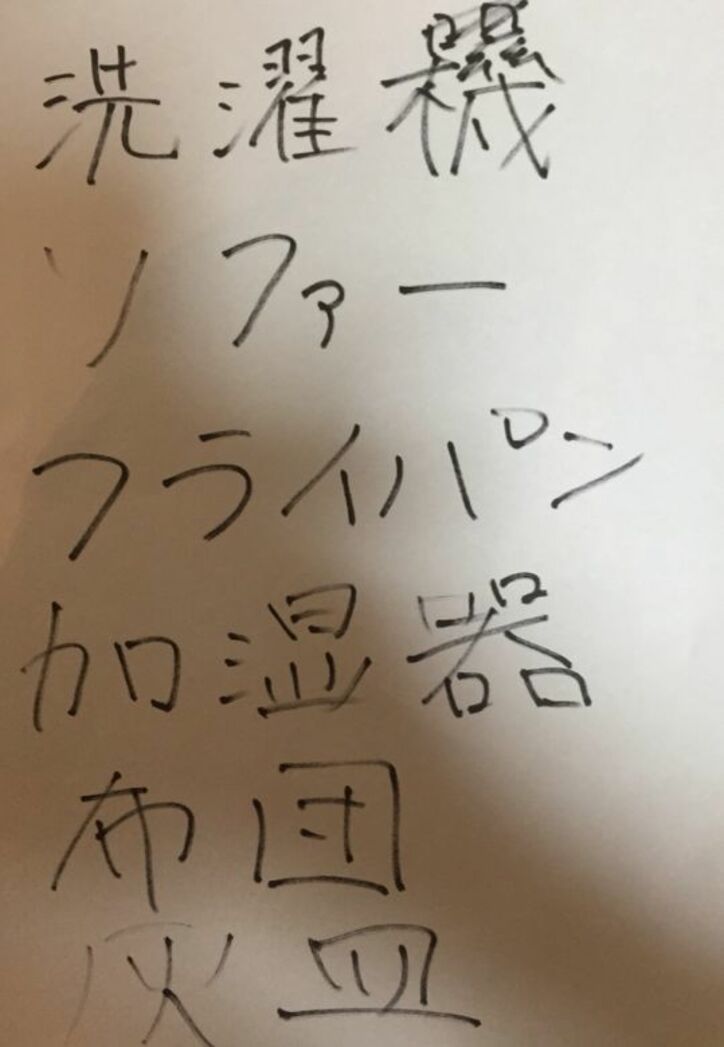 洗濯機
ソファー
フライパン
加湿器
布団
灰皿